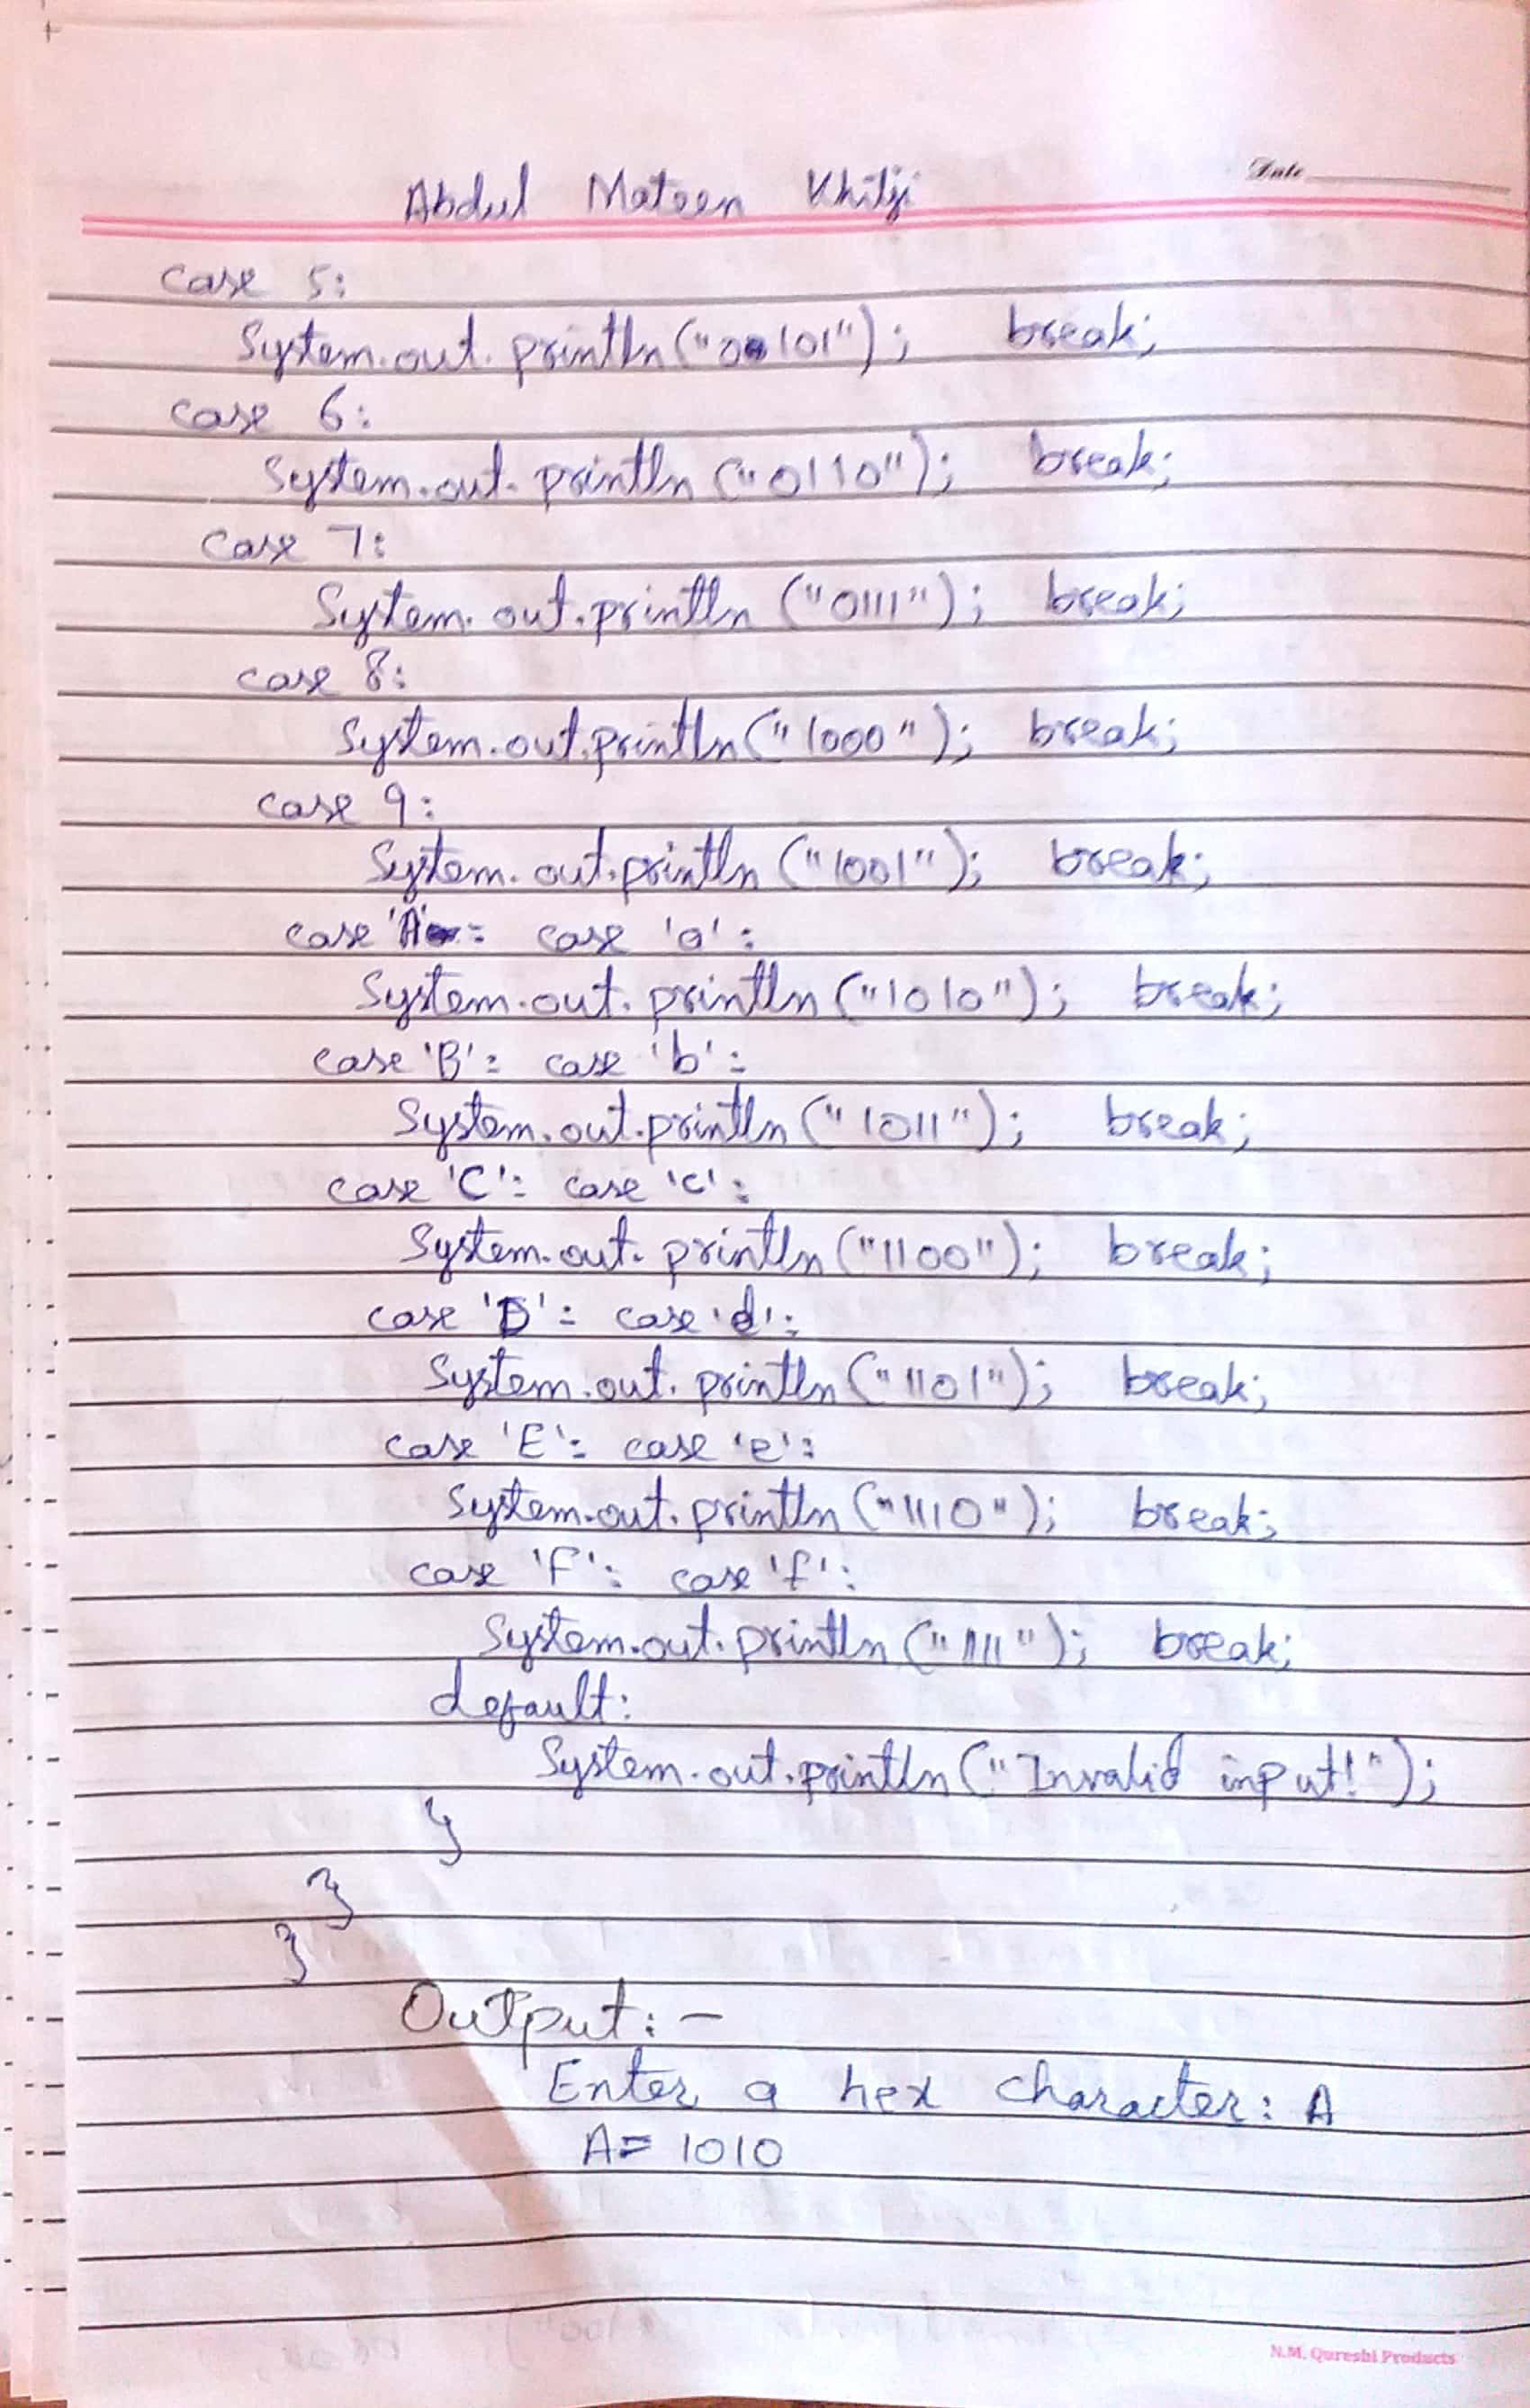 Date
Abdul Mateen Khilji
case 5:
System.out.println("0101"); break;
case 6:
System.out.println("0110"); break;
case 7:
System.out.println("0111"); break;
case 8:
System.out.println("1000"); break;
case 9:
System.out.println("1001"); break;
case 'A': case 'a':
System.out.println("1010"); break;
case 'B': case 'b':
System.out.println("1011"); break;
case 'C': case 'c':
System.out.println("1100"); break;
case 'D': case 'd':
System.out.println("1101"); break;
case 'E': case 'e':
System.out.println("1110"); break;
case 'F': case 'f':
System.out.println("1111"); break;
default:
System.out.println("Invalid input!");
}
}
}
Output:-
Enter a hex character: A
A= 1010
N.M. Qureshi Products